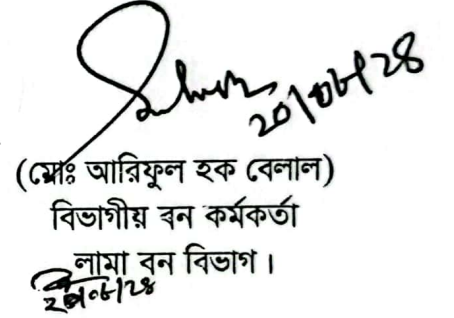 ২০/০৮/২৪
(মোঃ আরিফুল হক বেলাল)
বিভাগীয় বন কর্মকর্তা
লামা বন বিভাগ।